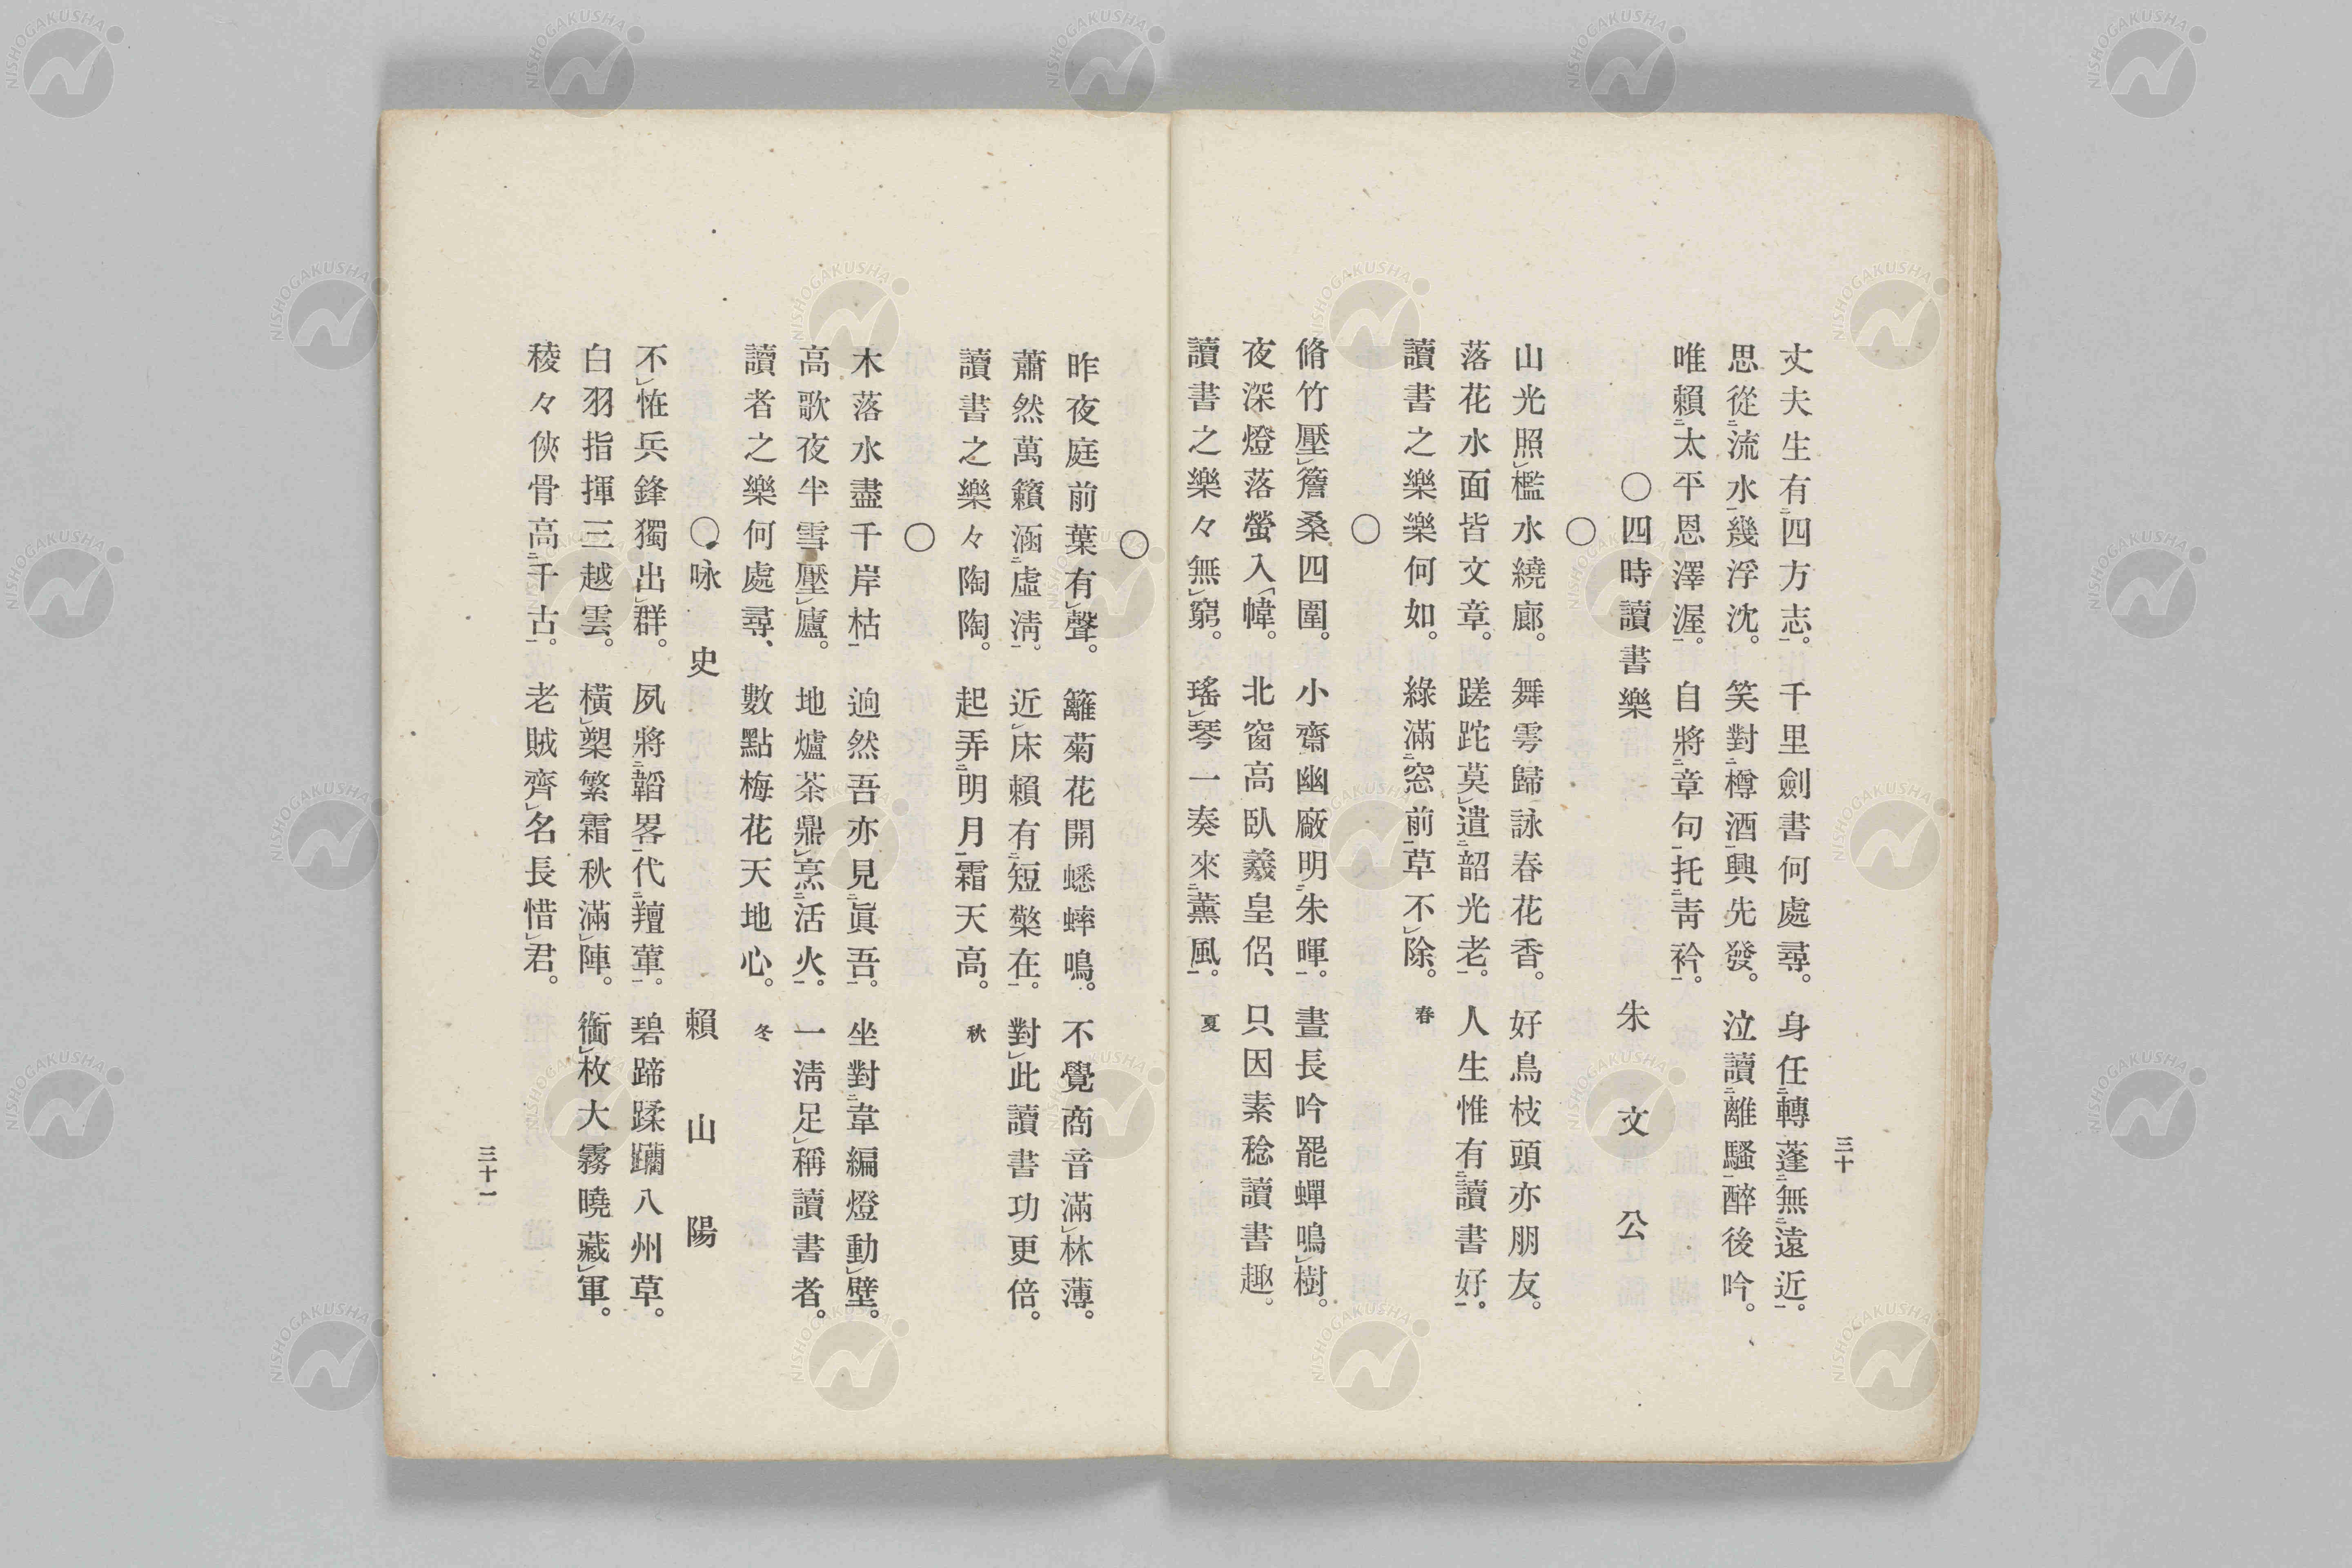 三十
丈夫生有四方志。千里劍書何處尋。身任轉蓬無遠近。
思從流水幾浮沈。笑對樽酒興先發。泣讀離騷醉後吟。
唯賴太平恩澤渥。自將章句托靑衿。
○四時讀書樂 朱文公
○
山光照檻水繞廊。舞雩歸詠春花香。好鳥枝頭亦朋友。
落花水面皆文章。蹉跎莫遣韶光老。人生惟有讀書好。
讀書之樂樂何如。綠滿窓前草不除。春
○
脩竹壓簷桑四圍。小齋幽廠明朱暉。晝長吟罷蟬鳴樹。
夜深燈落螢入幃。北窗高臥羲皇侶、只因素稔讀書趣。
讀書之樂々無窮。瑤琴一奏來薰風。夏
○
昨夜庭前葉有聲。籬菊花開蟋蟀鳴。不覺商音滿林薄。
蕭然萬籟涵虛淸。近床賴有短檠在。對此讀書功更倍。
讀書之樂々陶陶。起弄明月霜天高。秋
○
木落水盡千岸枯 逈然吾亦見眞吾。坐對韋編燈動壁。
高歌夜半雪壓廬。地爐茶鼎烹活火。一淸足稱讀書者。
讀者之樂何處尋、數點梅花天地心。冬
○咏史 賴山陽
不恠兵鋒獨出群。夙將韜畧代羶葷。碧蹄蹂躪八州草。
白羽指揮三越雲。橫槊繁霜秋滿陣。銜枚大霧曉藏軍。
稜々俠骨高千古。老賊齊名長惜君。
三十一
NISHOGAKUSHA